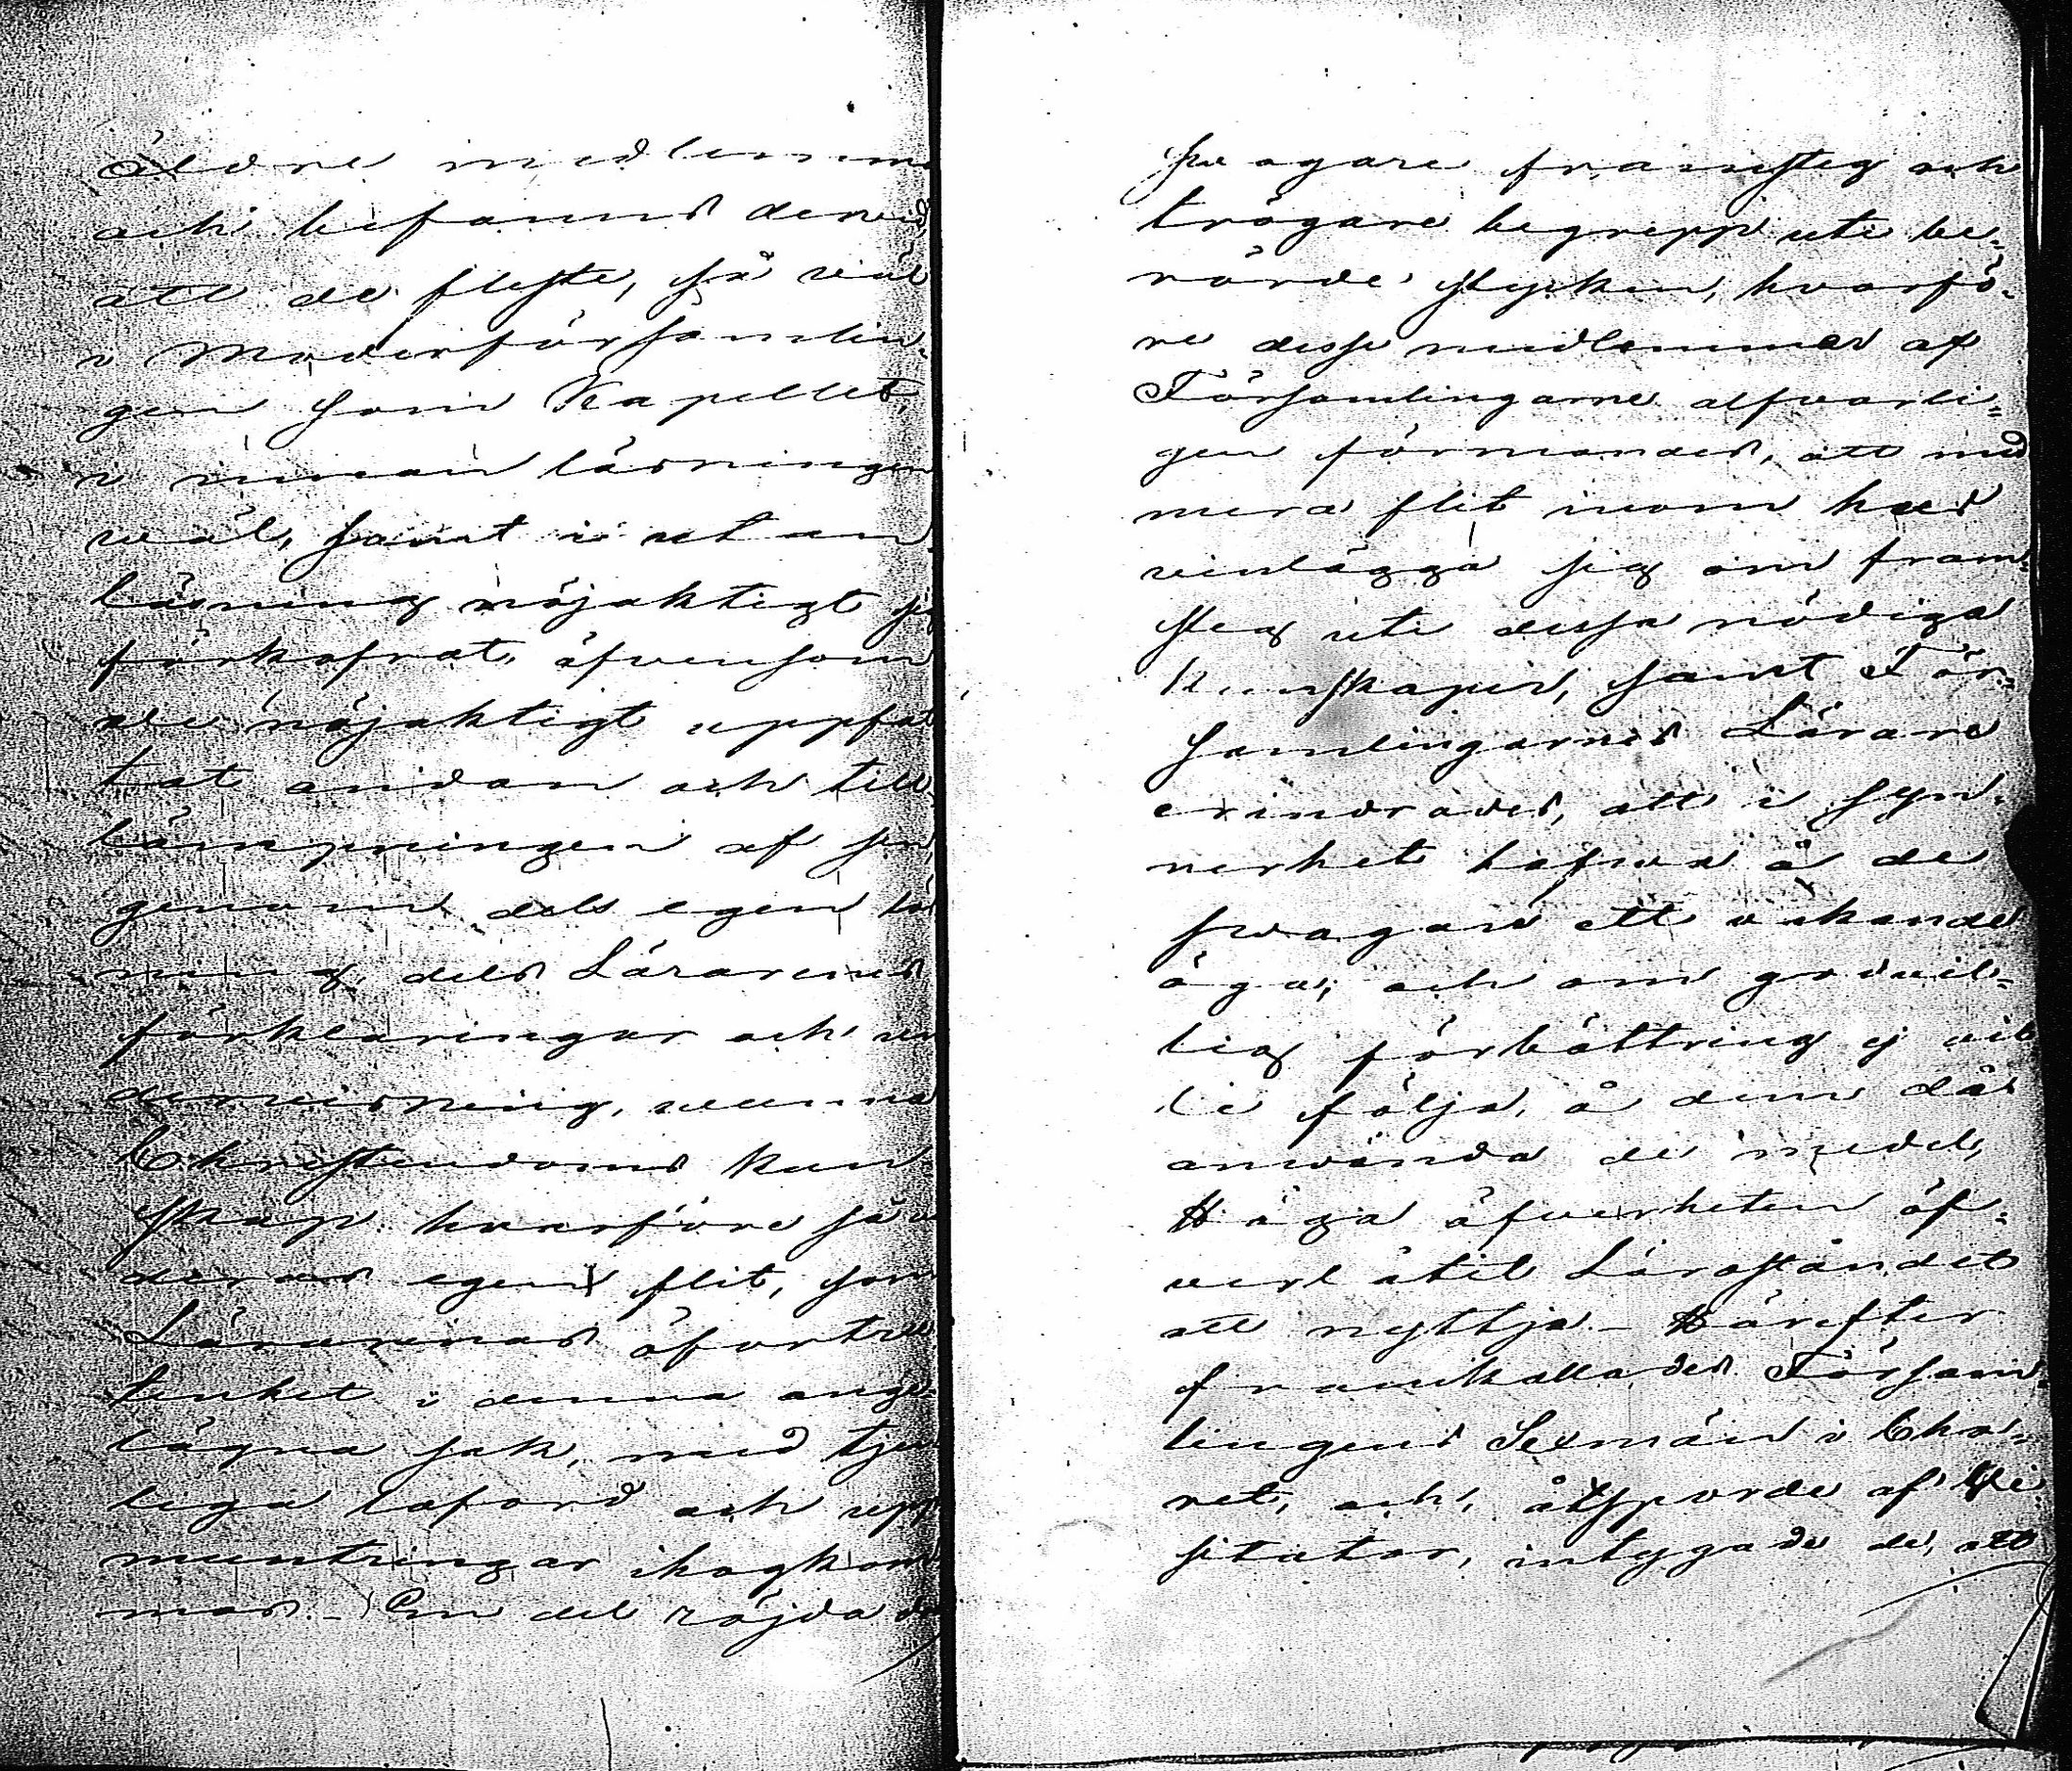 äldre medlemm
och befanns dervid,
att de fleste, så väl
i Moderförsamlin-
gen som Kapellet,
i innan läsningen
wäl, samt i utan
läsning nöjaktigt sig
förkofrat, äfvensom
de nöjaktigt uppfat
tat andan och till
lämpningen af sin
genom dels egen lä
ning, dels Lärarens
förklaringar och un
dervisning, vunna
Christendoms kun
skap hvarföre så v
deras egen flit, som
Lärarenas oförtru
tenhet i denna ange
lägna sak, med tjen
liga loford och upp
muntringar ihogkom
mos. - En del röjda do
swagare framsteg och
trögare begrepp uti be-
rörde stycken, hvarfö-
re desse medlemmar af
Församlingarne alfvarli-
gen förmanades, att med
mera flit inom hus
vinlägga sig om fram-
steg uti dessa nödiga
kunskaper, samt För-
samlingarnes Lärare
erindrades, att i syn-
nerhet hafwa å de
swagare ett vakande
öga, och om godvil-
lig förbättring ej vil
le följa, å dem då
använda de medel,
Höga öfverheten öf-
verlåtit Läroståndet
att nyttja - Härefter
framkallades Försam-
lingens Sexmän i Cho-
ret, och, åtsporde af Vi-
sitator, intygade de, att